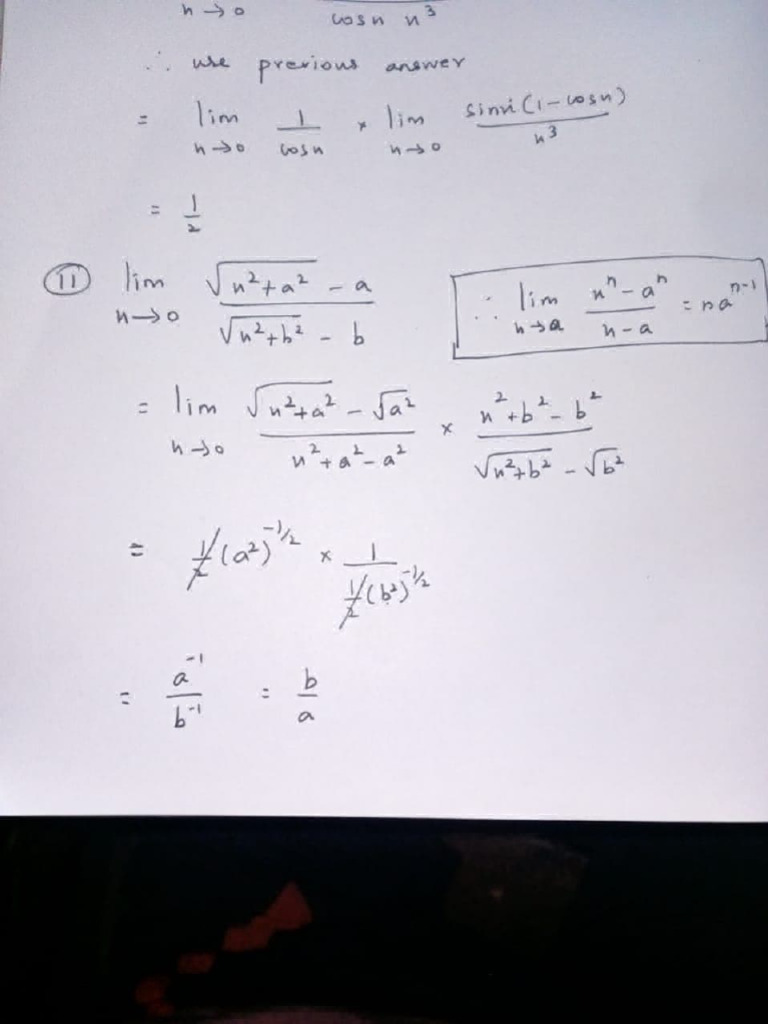 n→0 cosn n³
∴ use previous answer
= lim n→0 1/cosn × lim n→0 sinn(1-cosn)/n³
= 1/2
(11) lim n→0 (√(n²+a²) - a)/(√(n²+b²) - b) ∵ lim n→a (nⁿ-aⁿ)/(n-a) = naⁿ⁻¹
= lim n→0 (√(n²+a²) - √a²)/(n²+a²-a²) × (n²+b²-b²)/(√(n²+b²) - √b²)
= 1/2(a²)^(-1/2) × 1/(1/2(b²)^(-1/2))
= a⁻¹/b⁻¹ = b/a